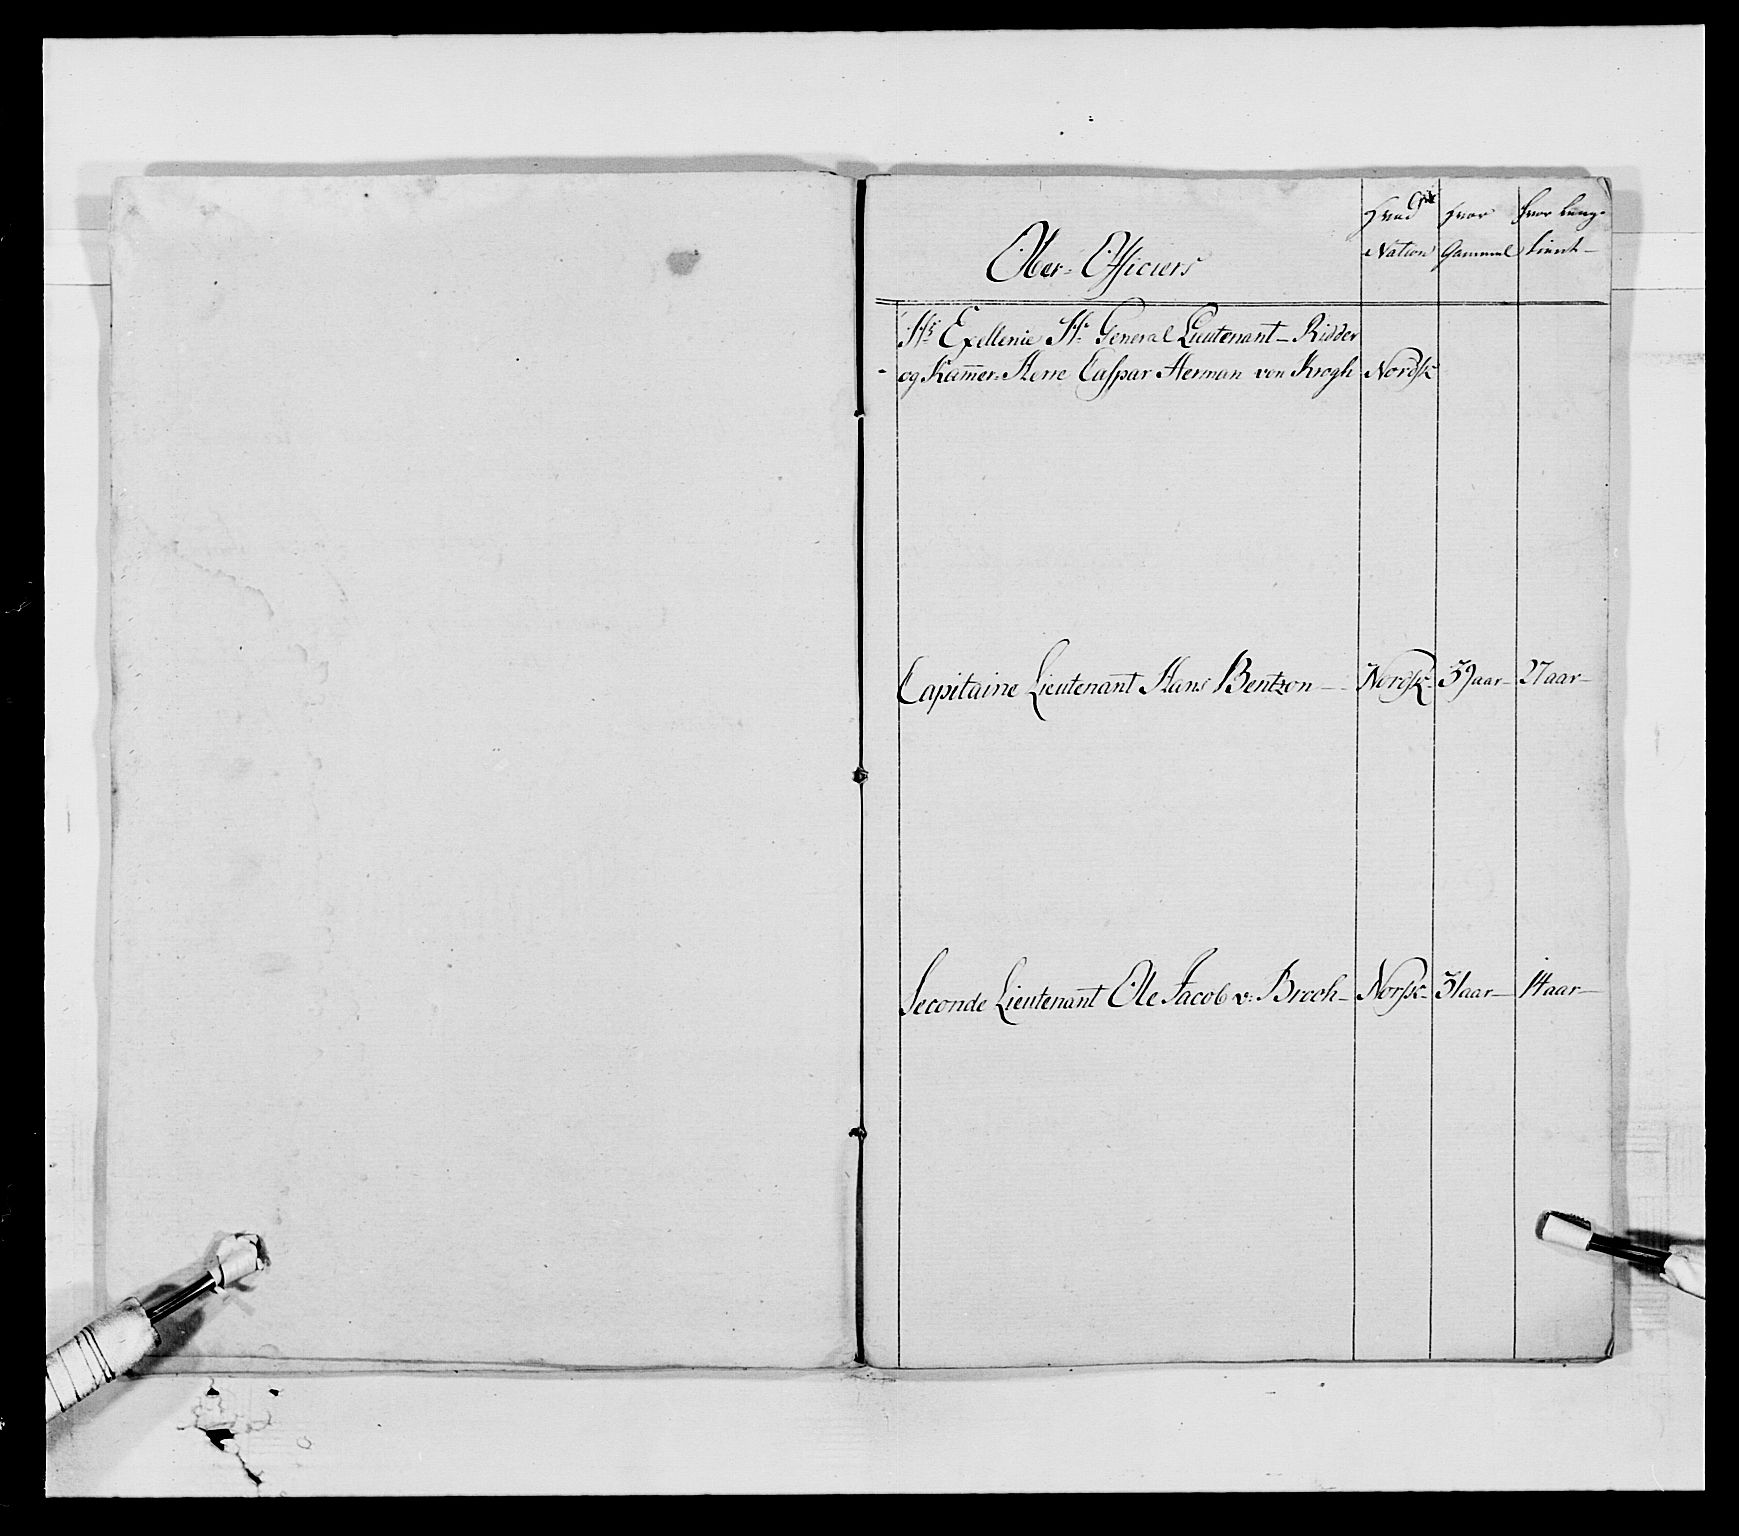 Ober-Officiers
Hvad Hvor Hvor længe
Nation Gammel tient
Hs Exellenie Hr General Lieutenant Ridder
og Kam̅er-Herre Caspar Herman von Krogh Nordsk
Capitaine Lieutenant Hans Bentzon Nordsk 39 aar 27 aar
Seconde Lieutenant Ole Jacob v: Broch Norsk 31 aar 14 aar